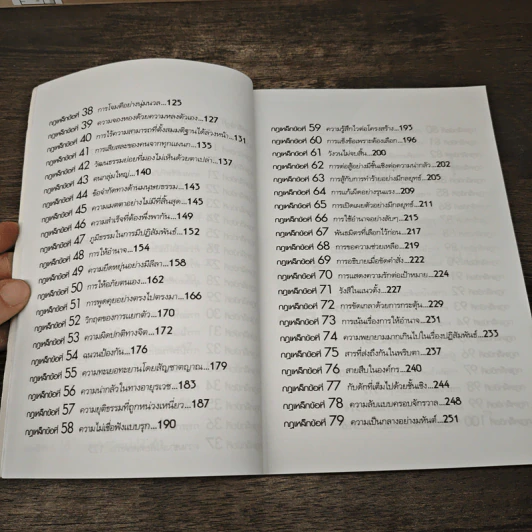 กฎเหล็กข้อที่ 38 การโจมตีอย่างนุ่มนวล...125
กฎเหล็กข้อที่ 39 ความจองหองด้วยความหลงตัวเอง...127
กฎเหล็กข้อที่ 40 การไร้ความสามารถที่ตั้งสมมติฐานได้ล่วงหน้า...131
กฎเหล็กข้อที่ 41 การเสียสละของคนจากทุกแผนก...135
กฎเหล็กข้อที่ 42 วัฒนธรรมย่อยที่มองไม่เห็นด้วยตาเปล่า...137
กฎเหล็กข้อที่ 43 คนกลุ่มใหญ่...140
กฎเหล็กข้อที่ 44 ข้อจำกัดทางด้านมนุษยธรรม...143
กฎเหล็กข้อที่ 45 ความเมตตาอย่างไม่มีที่สิ้นสุด...145
กฎเหล็กข้อที่ 46 ความสำเร็จที่ต้องพึ่งพากัน...149
กฎเหล็กข้อที่ 47 ภูมิธรรมในการมีปฏิสัมพันธ์...152
กฎเหล็กข้อที่ 48 การให้อำนาจ...154
กฎเหล็กข้อที่ 49 ความยืดหยุ่นอย่างมีลีลา...158
กฎเหล็กข้อที่ 50 การให้อภัยตนเอง...162
กฎเหล็กข้อที่ 51 การพูดคุยอย่างตรงไปตรงมา...166
กฎเหล็กข้อที่ 52 วิกฤตของการแยกตัว...170
กฎเหล็กข้อที่ 53 ความผิดปกติทางจิต...172
กฎเหล็กข้อที่ 54 ฉนวนป้องกัน...176
กฎเหล็กข้อที่ 55 ความทะเยอทะยานโดยสัญชาตญาณ...179
กฎเหล็กข้อที่ 56 ความน่ากลัวในทางอายุรเวช...183
กฎเหล็กข้อที่ 57 ความยุติธรรมที่ถูกหน่วงเหนี่ยว...187
กฎเหล็กข้อที่ 58 ความไม่เชื่อฟังแบบรุก...190
กฎเหล็กข้อที่ 59 ความรู้สึกไวต่อโครงสร้าง...193
กฎเหล็กข้อที่ 60 การแข็งข้อเพราะต้องเลือก...196
กฎเหล็กข้อที่ 61 วังวนไม่จบสิ้น...200
กฎเหล็กข้อที่ 62 การต่อสู้อย่างมีชั้นเชิงต่อความน่ากลัว...202
กฎเหล็กข้อที่ 63 การสู้กับการทำร้ายอย่างมีกลยุทธ์...205
กฎเหล็กข้อที่ 64 การแก้ผิดอย่างรุนแรง...209
กฎเหล็กข้อที่ 65 การเปิดเผยตัวอย่างมีกลยุทธ์...211
กฎเหล็กข้อที่ 66 การใช้อำนาจอย่างลับๆ...215
กฎเหล็กข้อที่ 67 พันธมิตรที่เลือกไว้ก่อน...217
กฎเหล็กข้อที่ 68 การขอความช่วยเหลือ...219
กฎเหล็กข้อที่ 69 การอธิบายเมื่อขัดคำสั่ง...222
กฎเหล็กข้อที่ 70 การแสดงความรักต่อเป้าหมาย...224
กฎเหล็กข้อที่ 71 รังสีในแนวตั้ง...227
กฎเหล็กข้อที่ 72 การขัดเกลาด้วยการกระตุ้น...229
กฎเหล็กข้อที่ 73 การเน้นเรื่องการให้อำนาจ...231
กฎเหล็กข้อที่ 74 ความพยายามมากเกินไปในเรื่องปฏิสัมพันธ์...233
กฎเหล็กข้อที่ 75 สารที่ส่งถึงกันในพริบตา...237
กฎเหล็กข้อที่ 76 สายสืบในองค์กร...240
กฎเหล็กข้อที่ 77 กับดักที่เต็มไปด้วยชั้นเชิง...244
กฎเหล็กข้อที่ 78 ความลับแบบครอบจักรวาล...248
กฎเหล็กข้อที่ 79 ความเป็นกลางอย่างมหันต์...251